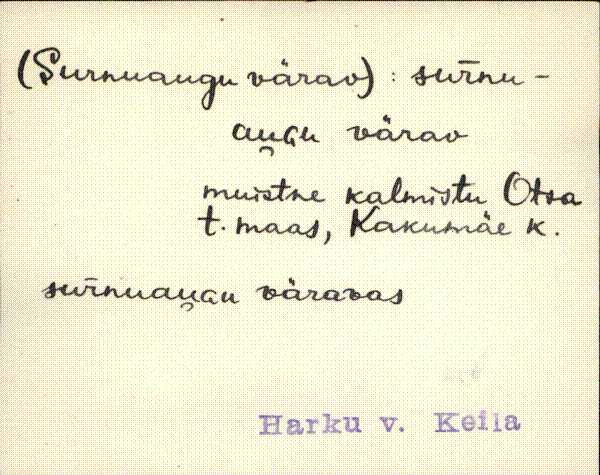 (Surnuaugu värav) : sur̄nu-
au̯ɢu värav
muistne kalmistu Otsa
t. maas, Kakumäe k.
sur̄nuau̯ɢu väravas
Harku v. Keila